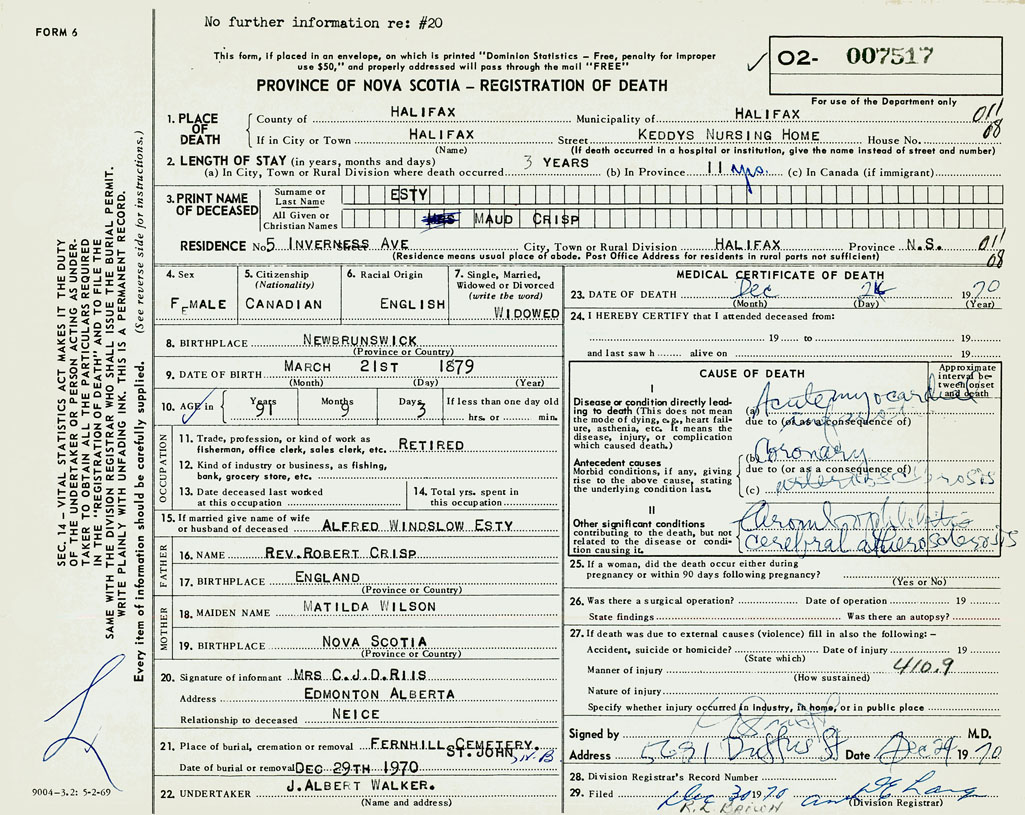 No further information re: #20
FORM 6
This form, if placed in an envelope, on which is printed "Dominion Statistics – Free, penalty for improper
use $50," and properly addressed will pass through the mail "FREE"
PROVINCE OF NOVA SCOTIA – REGISTRATION OF DEATH
02- 007517
For use of the Department only
1. PLACE OF DEATH
County of HALIFAX Municipality of HALIFAX 011
If in City or Town HALIFAX Street KEDDYS NURSING HOME House No. 08
(Name) (If death occurred in a hospital or institution, give the name instead of street and number)
2. LENGTH OF STAY (in years, months and days)
(a) In City, Town or Rural Division where death occurred 3 YEARS (b) In Province 11 yrs. (c) In Canada (if immigrant)
3. PRINT NAME OF DECEASED
Surname or Last Name ESTY
All Given or Christian Names MRS MAUD CRISP
RESIDENCE No. 5 INVERNESS AVE City, Town or Rural Division HALIFAX Province N.S. 011
(Residence means usual place of abode. Post Office Address for residents in rural parts not sufficient) 08
4. Sex FEMALE
5. Citizenship (Nationality) CANADIAN
6. Racial Origin ENGLISH
7. Single, Married, Widowed or Divorced (write the word) WIDOWED
8. BIRTHPLACE NEWBRUNSWICK
(Province or Country)
9. DATE OF BIRTH MARCH 21ST 1879
(Month) (Day) (Year)
10. AGE in Years 91 Months 9 Days 3 If less than one day old
hrs. or min.
OCCUPATION
11. Trade, profession, or kind of work as
fisherman, office clerk, sales clerk, etc. RETIRED
12. Kind of industry or business, as fishing,
bank, grocery store, etc.
13. Date deceased last worked
at this occupation
14. Total yrs. spent in
this occupation
15. If married give name of wife
or husband of deceased ALFRED WINDSLOW ESTY
FATHER
16. NAME REV. ROBERT CRISP
17. BIRTHPLACE ENGLAND
(Province or Country)
MOTHER
18. MAIDEN NAME MATILDA WILSON
19. BIRTHPLACE NOVA SCOTIA
(Province or Country)
20. Signature of informant MRS C.J.D. RIIS
Address EDMONTON ALBERTA
Relationship to deceased NEICE
21. Place of burial, cremation or removal FERNHILL CEMETERY.
ST. JOHN N.B.
Date of burial or removal DEC 29TH 1970
22. UNDERTAKER J. ALBERT WALKER.
(Name and address)
MEDICAL CERTIFICATE OF DEATH
23. DATE OF DEATH Dec 24 1970
(Month) (Day) (Year)
24. I HEREBY CERTIFY that I attended deceased from:
19 to 19
and last saw h alive on 19
CAUSE OF DEATH
Approximate interval between onset and death
I
Disease or condition directly leading to death (This does not
mean the mode of dying, e.g., heart failure, asthenia, etc. It means the
disease, injury, or complication
which caused death.)
(a) Acute myocardial
due to (or as a consequence of)
Antecedent causes
Morbid conditions, if any, giving
rise to the above cause, stating
the underlying condition last.
(b) Coronary
due to (or as a consequence of)
(c) arteriosclerosis
II
Other significant conditions
contributing to the death, but not
related to the disease or condition causing it.
Thrombophlebitis
cerebral atherosclerosis
25. If a woman, did the death occur either during
pregnancy or within 90 days following pregnancy?
(Yes or No)
26. Was there a surgical operation? Date of operation 19
State findings Was there an autopsy?
27. If death was due to external causes (violence) fill in also the following: –
Accident, suicide or homicide? Date of injury 19
(State which)
Manner of injury 410.9
(How sustained)
Nature of injury
Specify whether injury occurred in industry, in home, or in public place
Signed by M.D.
Address 5691 Duffus St Date Dec 29 1970
28. Division Registrar's Record Number
29. Filed Dec 30 1970
(Division Registrar)
SEC. 14 – VITAL STATISTICS ACT MAKES IT THE DUTY
OF THE UNDERTAKER OR PERSON ACTING AS UNDERTAKER TO OBTAIN ALL THE PARTICULARS REQUIRED
IN THE "REGISTRATION OF DEATH" AND TO FILE THE
SAME WITH THE DIVISION REGISTRAR WHO SHALL ISSUE THE BURIAL PERMIT.
WRITE PLAINLY WITH UNFADING INK. THIS IS A PERMANENT RECORD.
Every item of information should be carefully supplied. (See reverse side for instructions.)
9004–3.2: 5-2-69